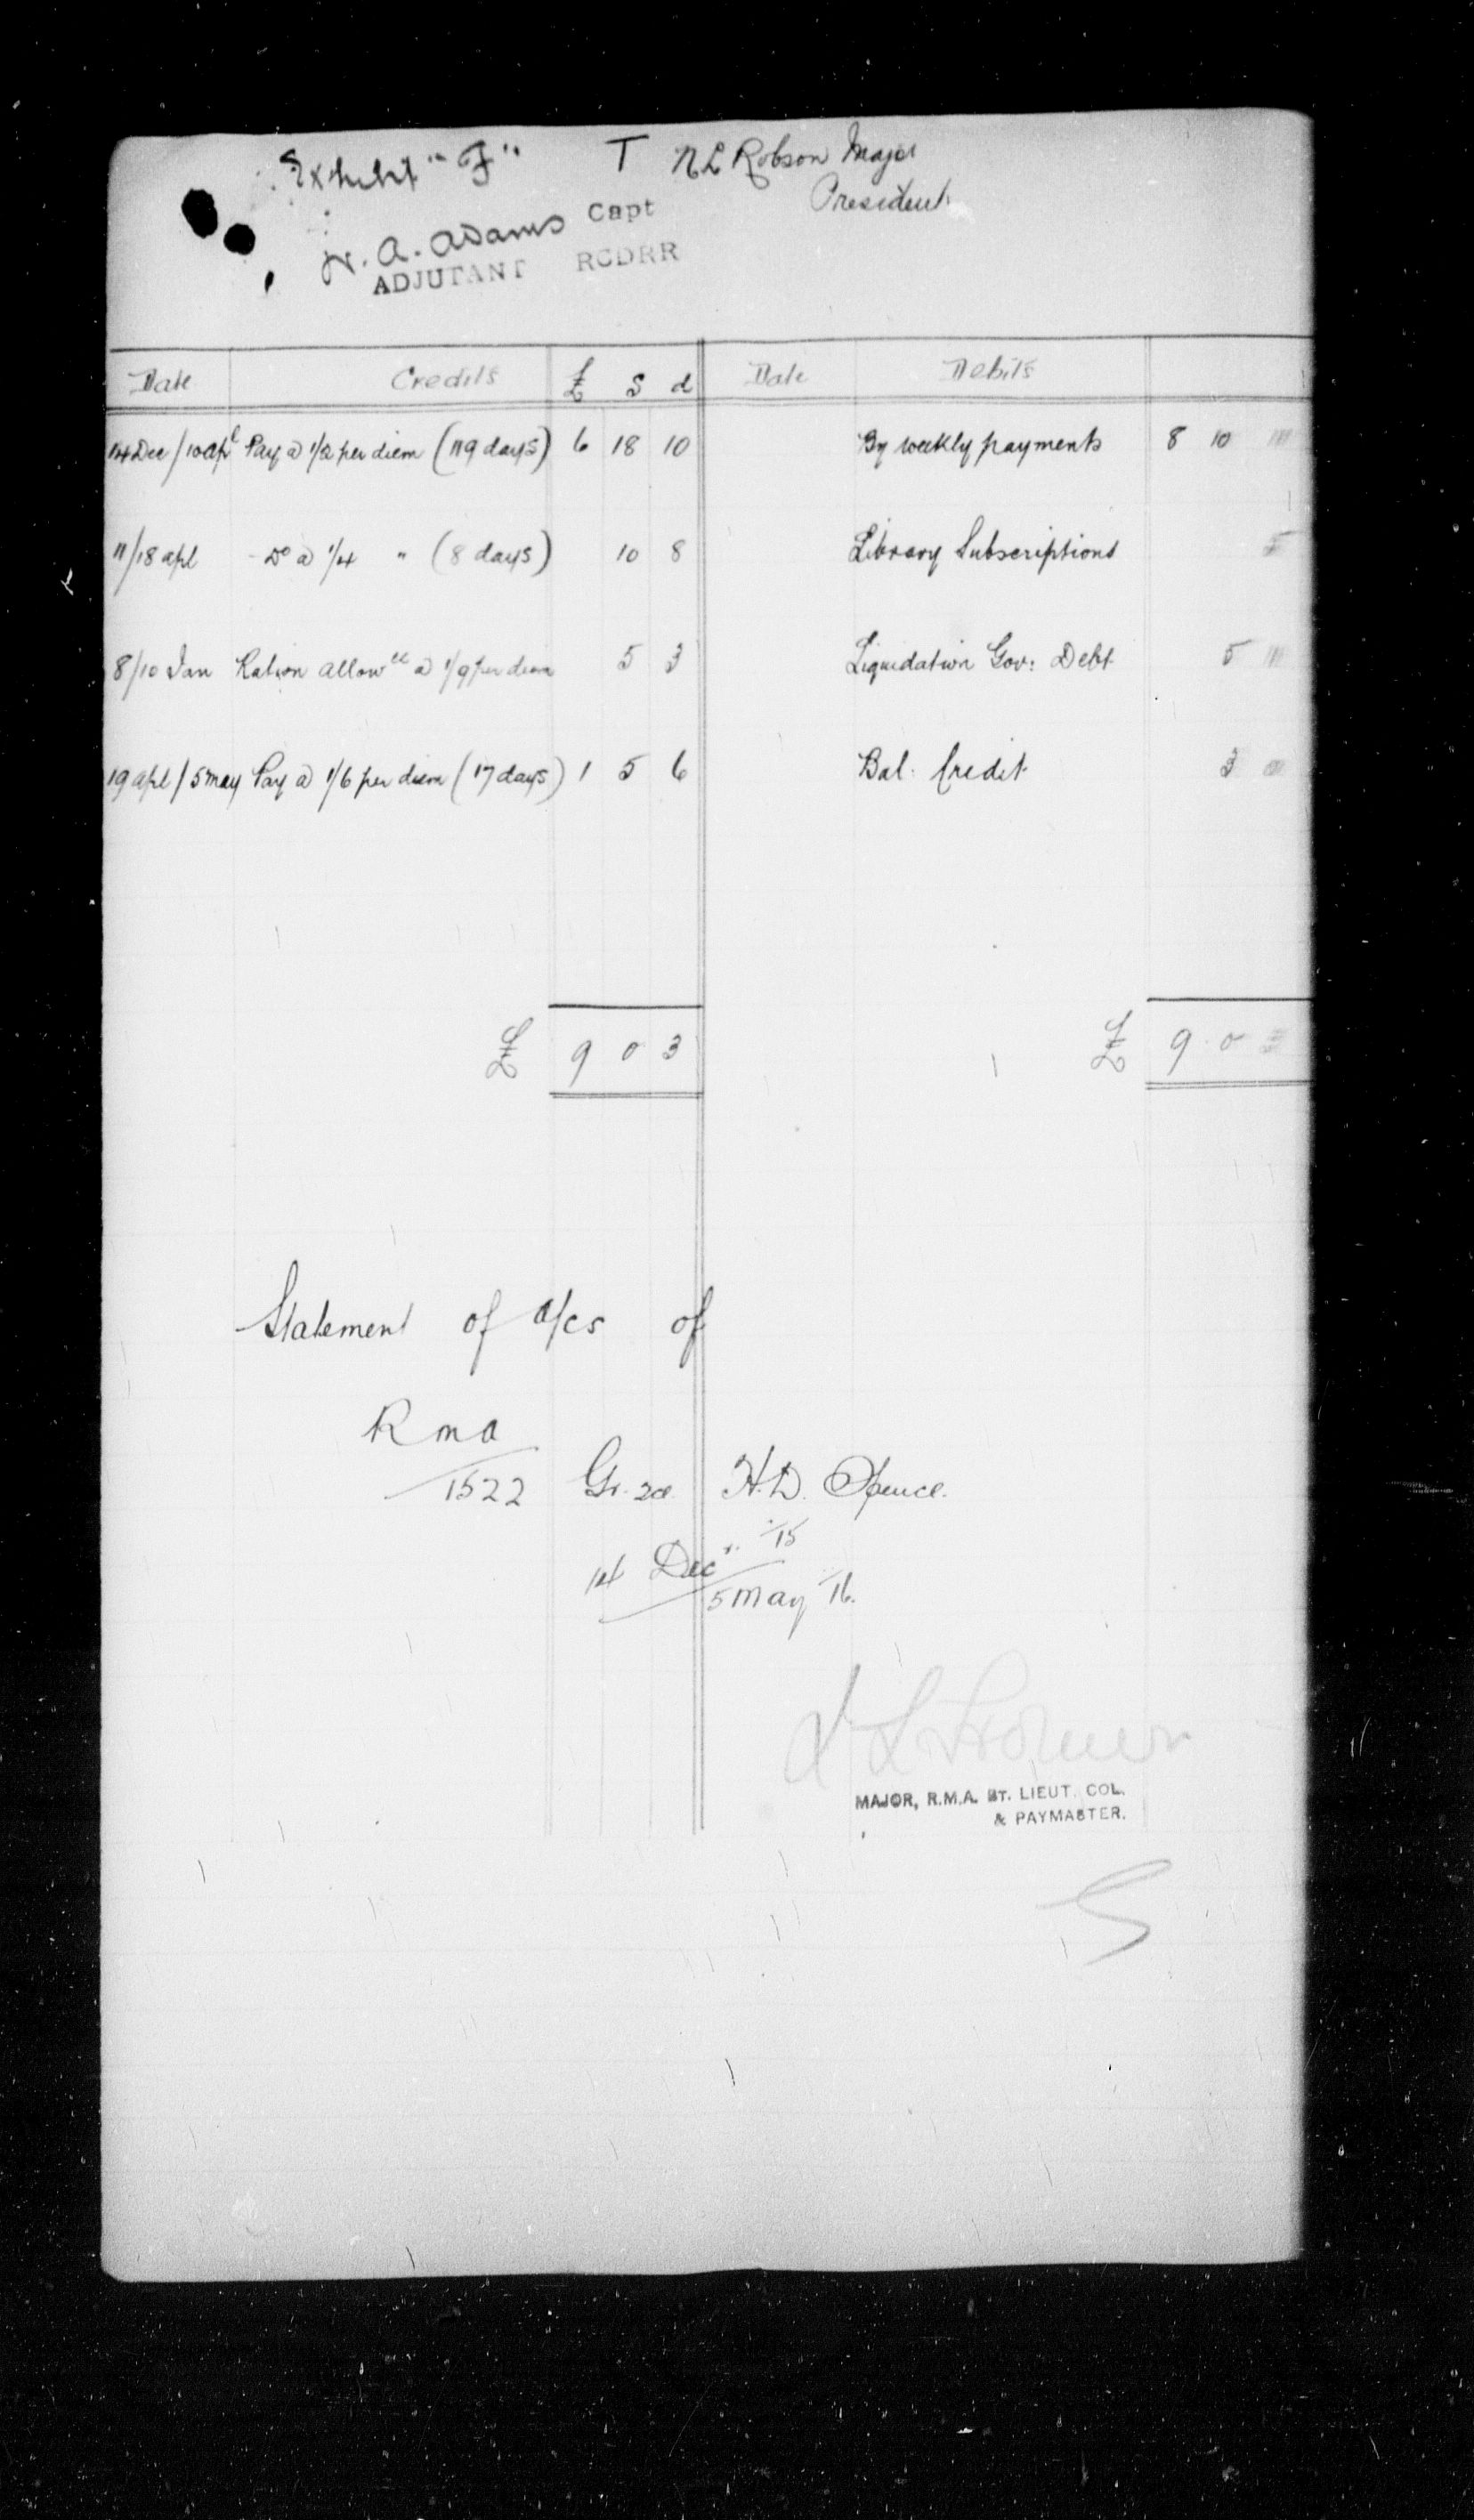 Exhibit "F" T N L Robson Major
President
A. Adams Capt
ADJUTANT RCDRR
Date Credits £ S d Date Debits
14 Dec/10 apl Pay @ 1/2 per diem (119 days) 6 18 10 By weekly payments 8 10
11/18 apl Do @ 1/4 " (8 days) 10 8 Library Subscriptions 5
8/10 Jan Ration allowce @ 1/9 per diem 5 3 Liquidation Gov: Debt 5
19 apl/5 may Pay @ 1/6 per diem (17 days) 1 5 6 Bal: Credit 3
£ 9 0 3 £ 9 0
Statement of a/cs of
R m a
1522 Gr. H.D. Spence.
14 Decr. 15
5 May 16.
MAJOR, R.M.A. BT. LIEUT. COL.
& PAYMASTER.